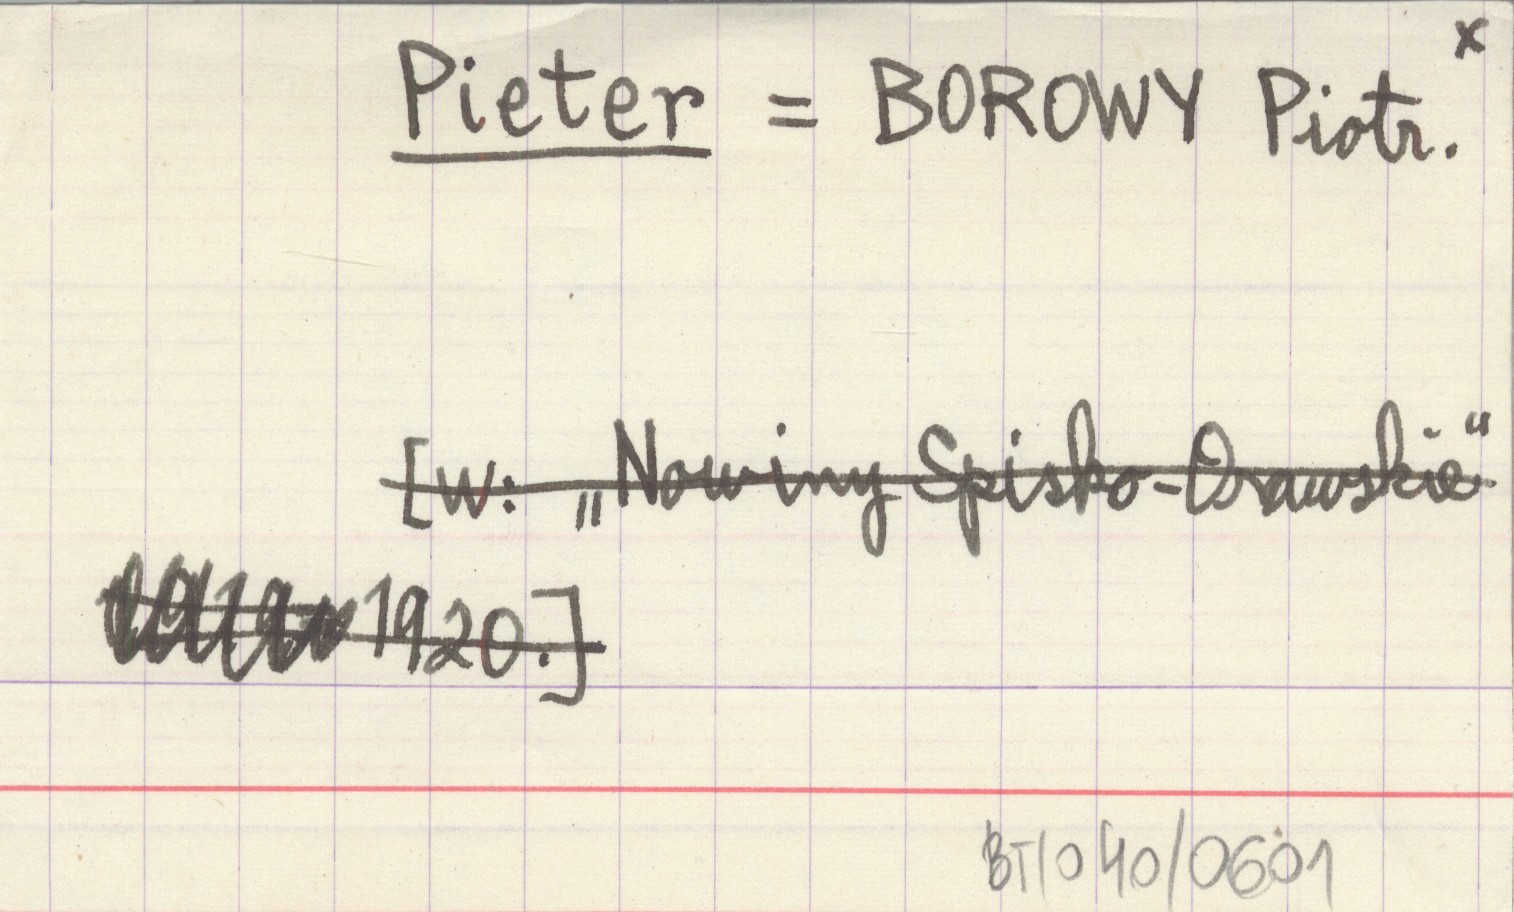 x
Pieter = BOROWY Piotr.
[w: „Nowiny Spisko-Orawskie“
1920.]
BT/040/0601